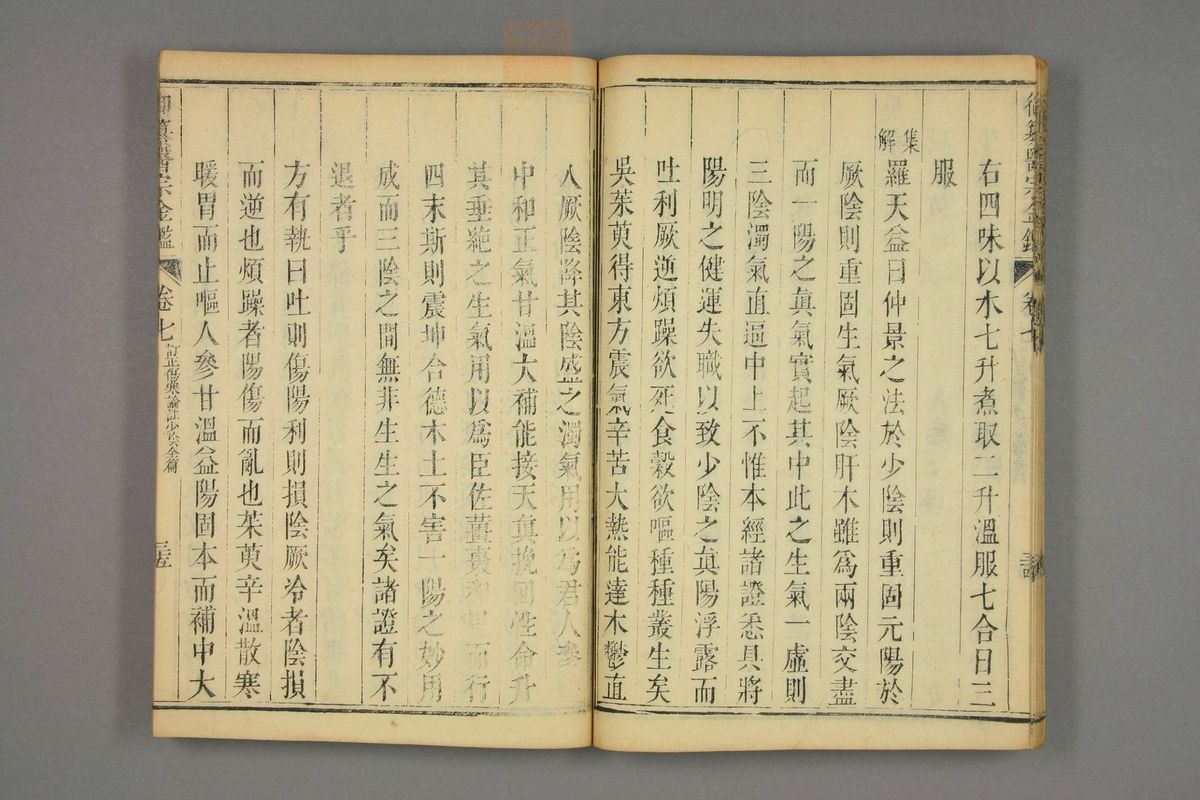 御纂醫宗金鑑 卷七
右四味以水七升煮取二升溫服七合日三
服
集解
羅天益曰仲景之法於少陰則重固元陽於
厥陰則重固生氣厥陰肝木雖爲兩陰交盡
而一陽之眞氣實起其中此之生氣一虛則
三陰濁氣直逼中上不惟本經諸證悉具將
陽明之健運失職以致少陰之眞陽浮露而
吐利厥逆煩躁欲死食穀欲嘔種種叢生矣
吳茱萸得東方震氣辛苦大熱能達木鬱直
入厥陰降其陰盛之濁氣用以爲君人參
中和正氣甘溫大補能接天眞挽回性命升
其垂絶之生氣用以爲臣佐薑棗和 而行
四末斯則震坤合德木土不害一陽之妙用
成而三陰之間無非生生之氣矣諸證有不
退者乎
方有執曰吐則傷陽利則損陰厥冷者陰損
而逆也煩躁者陽傷而亂也茱萸辛溫散寒
暖胃而止嘔人參甘溫益陽固本而補中大
御纂醫宗金鑑 卷七 訂正傷寒論註少陰全篇 三五